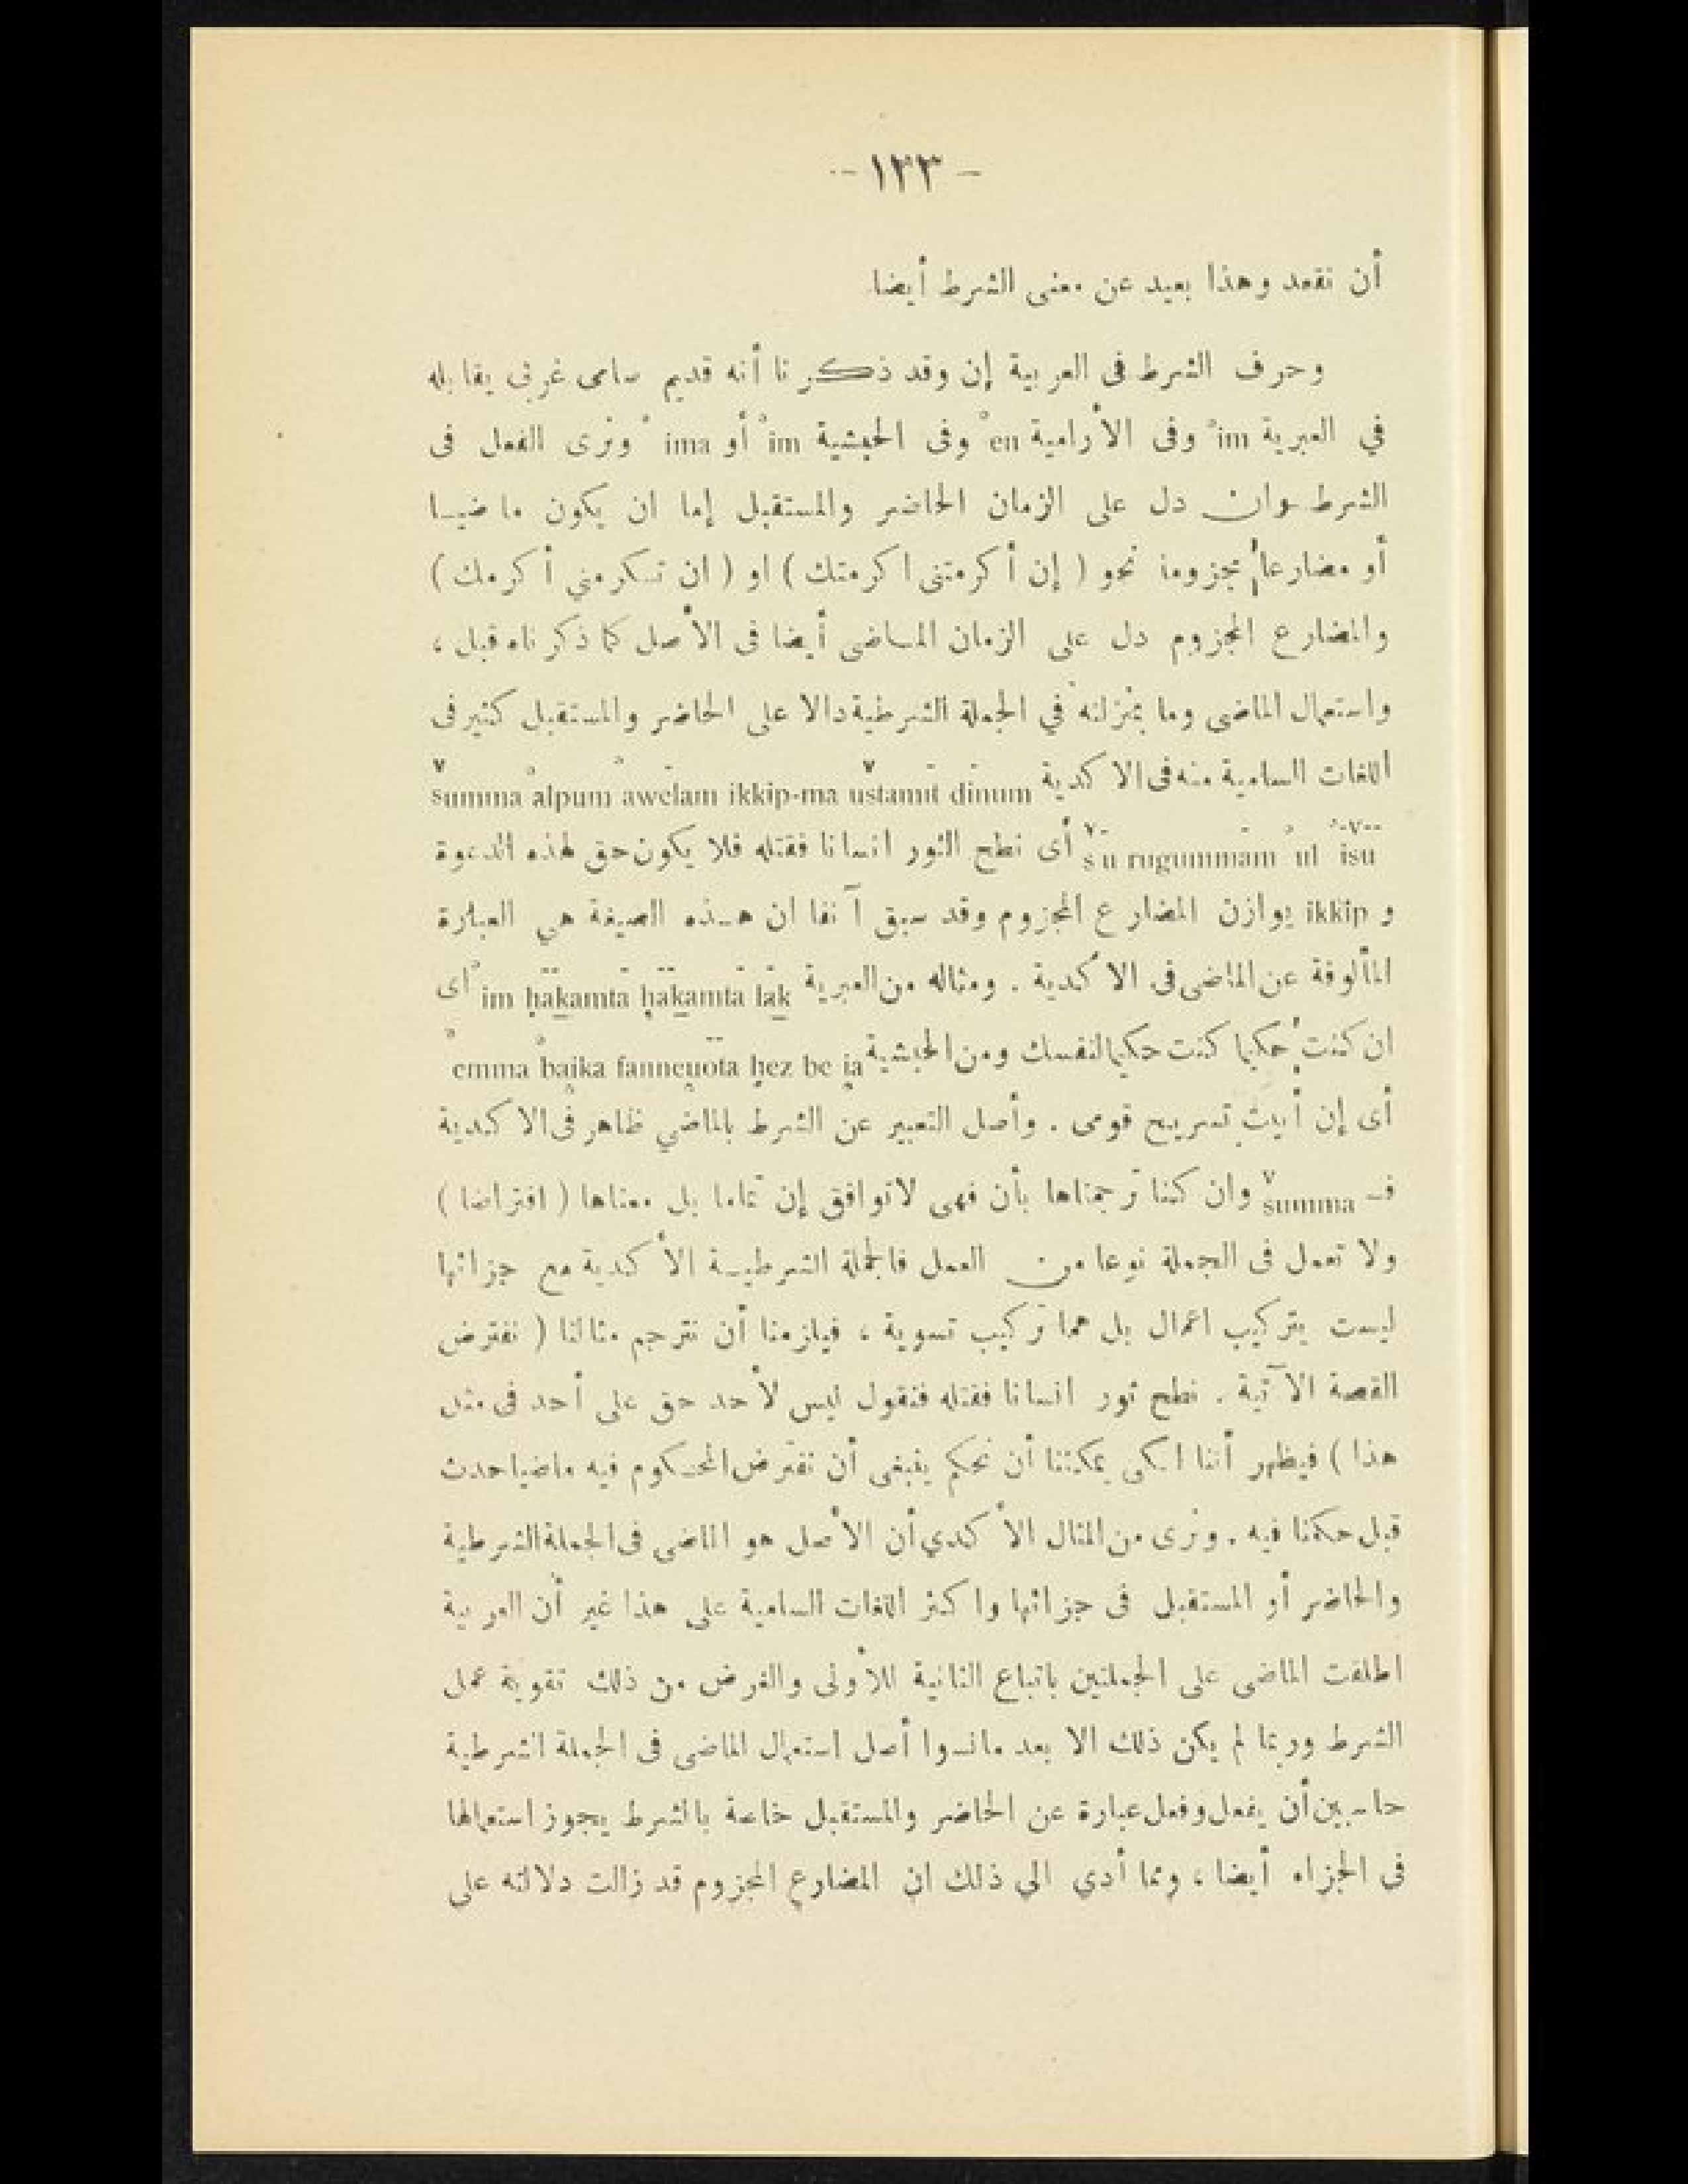 - ١٣٣ -
أن نقعد وهذا بعيد عن معنى الشرط أيضا
وحرف الشرط فى العربية إن وقد ذكرنا أنه قديم سامى غربى يقابله
في العبرية ʾim وفى الأرامية ʾen وفى الحبشية ʾim أو ʾima ونرى الفعل فى
الشرط وان دل على الزمان الحاضر والمستقبل إما ان يكون ماضيا
أو مضارعا مجزوما نحو ( إن أكرمتنى اكرمتك ) او ( ان تكرمني أكرمك )
والمضارع المجزوم دل على الزمان الماضى أيضا فى الأصل كما ذكرناه قبل ،
واستعمال الماضى وما بمنزلته في الجملة الشرطية دالا على الحاضر والمستقبل كثير فى
اللغات السامية منه فى الاكدية šumma ʾalpum ʾawēlam ikkip-ma uštamīt dīnum
šū rugummām ʾul ʾīšū أى نطح الثور انسانا فقتله فلا يكون حق لهذه الدعوة
و ikkip يوازن المضارع المجزوم وقد سبق آنفا ان هذه الصيغة هي العبارة
المألوفة عن الماضى فى الاكدية . ومثاله من العبرية ʾim ḥāḵamtā ḥāḵamtā lāḵ اى
ان كنت حكيما كنت حكيما لنفسك ومن الحبشية ʾemma ʾbaika fanneuōta ḥez be ia
أى إن أبيت تسريح قومى . وأصل التعبير عن الشرط بالماضي ظاهر فى الاكدية
فـ šumma وان كنا ترجمناها بأن فهى لاتوافق إن تماما بل معناها ( افتراضا )
ولا تعمل فى الجملة نوعا من العمل فالجملة الشرطية الأكدية مع جزائها
ليست بتركيب اعمال بل هما تركيب تسوية ، فيلزمنا أن نترجم مثالنا ( نفترض
القصة الآتية . نطح ثور انسانا فقتله فنقول ليس لأحد حق على أحد فى مثل
هذا ) فيظهر أننا لكى يمكننا أن نحكم ينبغى أن نفترض المحكوم فيه ماضيا حدث
قبل حكمنا فيه . ونرى من المثال الأكدي أن الأصل هو الماضى فى الجملة الشرطية
والحاضر أو المستقبل فى جزائها واكثر اللغات السامية على هذا غير أن العربية
اطلقت الماضى على الجملتين باتباع الثانية للأولى والغرض من ذلك تقوية عمل
الشرط وربما لم يكن ذلك الا بعد مانسوا أصل استعمال الماضى فى الجملة الشرطية
حاسبين أن يفعل وفعل عبارة عن الحاضر والمستقبل خاصة بالشرط يجوز استعمالها
فى الجزاء أيضا ، ومما أدي الي ذلك ان المضارع المجزوم قد زالت دلالته على